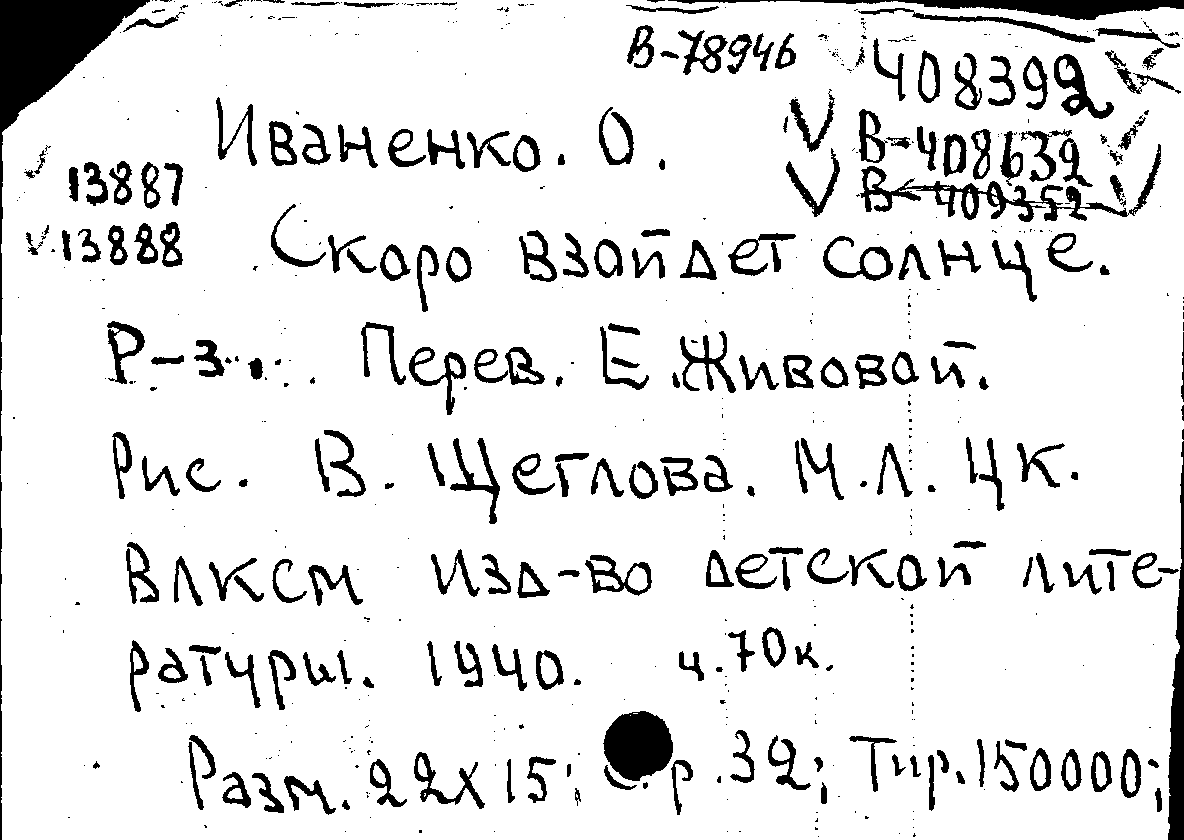 В-78946 408392
Иваненко. О. В-408632
13887 В-409352
13888 Скоро взойдет солнце.
Р-з. Перев. Е. Живовой.
Рис. В. Щеглова. М.Л. ЦК.
ВЛКСМ Изд-во детской лите-
ратуры. 1940. ц. 70к.
Разм. 22х15; р. 32; Тир. 150000;